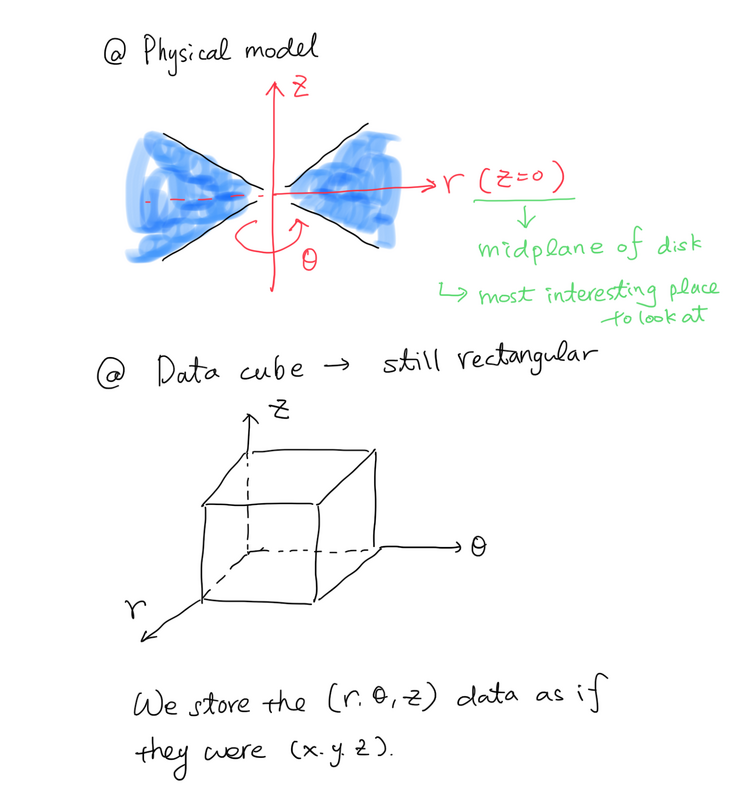 @ Physical model
z
r (z=0)
θ
midplane of disk
↳ most interesting place
to look at
@ Data cube → still rectangular
z
θ
r
We store the (r. θ, z) data as if
they were (x. y. z).